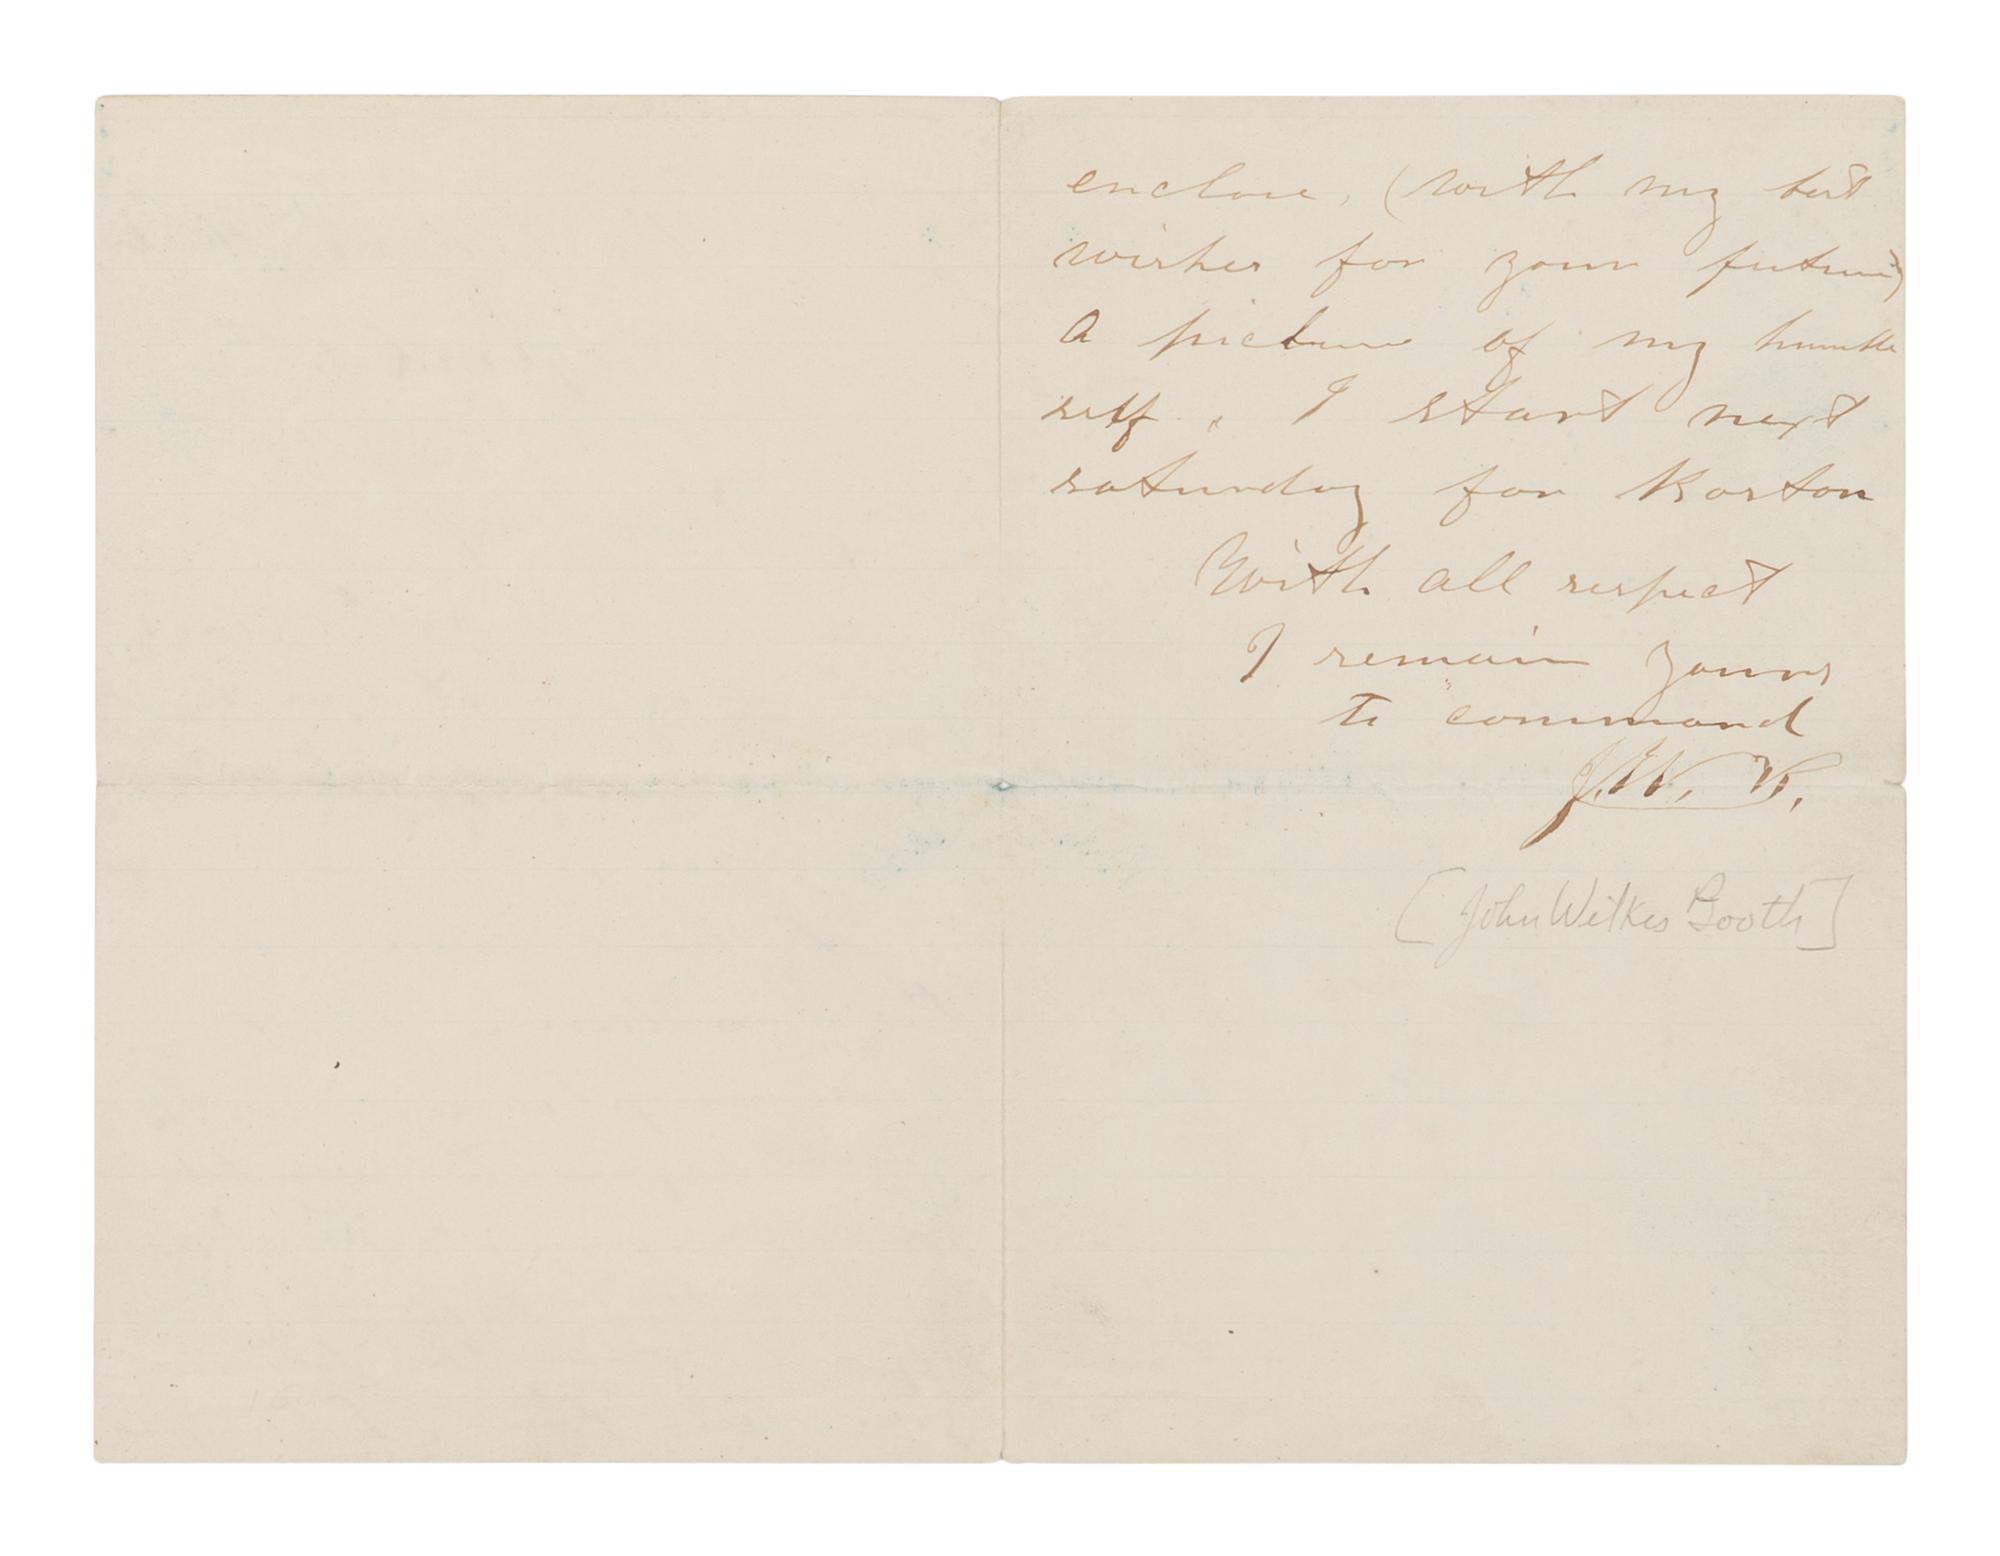 enclose, (with my best
wishes for your future)
A picture of my humble
self. I start next
saturday for Boston
With all respect
I remain yours
to command
J. W. B.
[John Wilkes Booth]